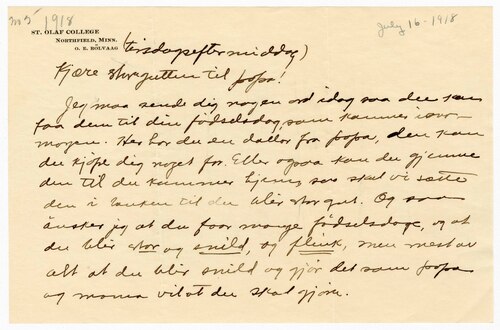 m5 1918
July 16-1918
ST. OLAF COLLEGE
NORTHFIELD, MINN.
O. E. RÖLVAAG
(tirsdagseftermiddag)
Kjære storgutten til papa!
Jeg maa sende dig nogen ord idag saa du kan
faa dem til din fødselsdag, som kommer iover-
morgen. Her har du en dollar fra papa, den kan
du kjøpe dig noget for. Eller ogsaa kan du gjemme
den til du kommer hjem, saa skal vi sætte
den i banken til du blir stor gut. Og saa
ønsker jeg at du faar mange fødselsdage, og at
du blir stor og snild, og flink, men mest av
alt at du blir snild og gjør det som papa
og mama vil at du skal gjøre.